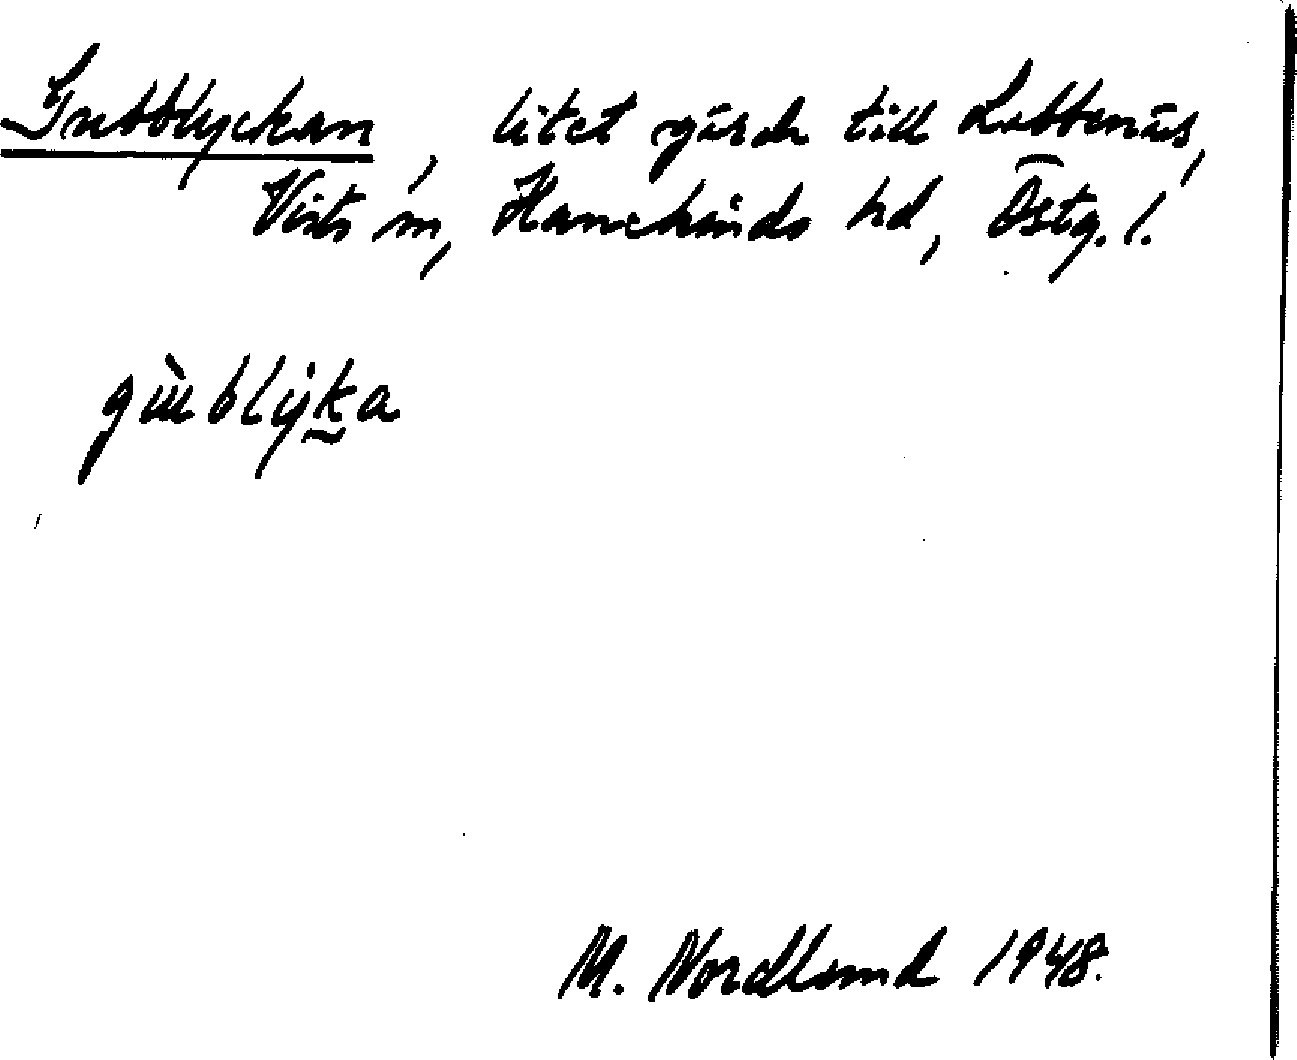 Gubblyckan, litet gärde till Lobbenäs,
Vists sn, Hanekinds hd, Östg. l.
gùblỳka
M. Nordlund 1948.